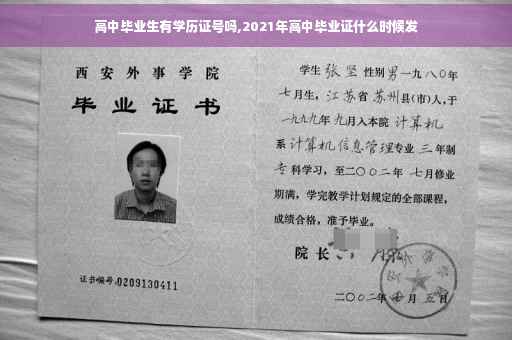 高中毕业生有学历证号吗,2021年高中毕业证什么时候发
西安外事学院
毕业证书
证书编号:0209130411
学生 张坚 性别 男 一九八〇年
七月生, 江苏省 苏州县(市)人,于
一九九九年 九月入本院 计算机
系 计算机信息管理专业 三 年制
专科学习, 至二〇〇二年 七月修业
期满, 学完教学计划规定的全部课程,
成绩合格, 准予毕业。
院长
二〇〇二年 月 五 日